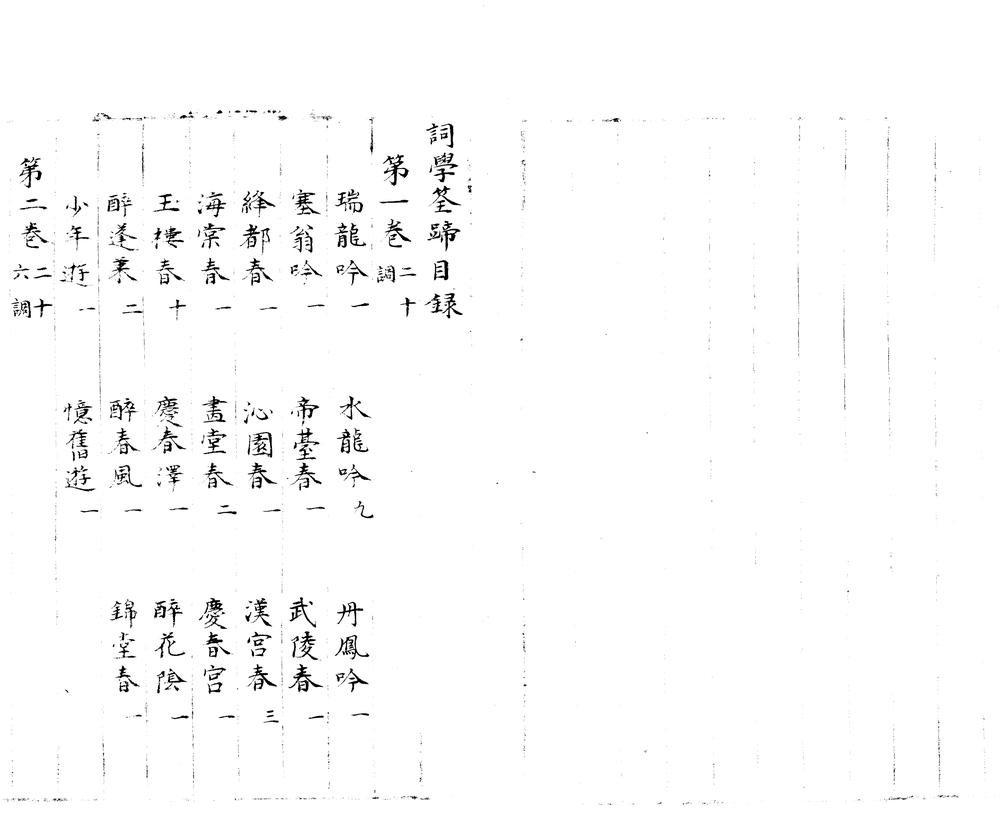 詞學荃蹄目録
第一卷二十調
瑞龍吟一 水龍吟九 丹鳳吟一
塞翁吟一 帝臺春一 武陵春一
絳都春一 沁園春一 漢宮春三
海棠春一 畫堂春二 慶春宮一
玉樓春十 慶春澤一 醉花陰一
醉蓬萊二 醉春風一 錦堂春一
少年遊一 憶舊遊一
第二卷二十六調